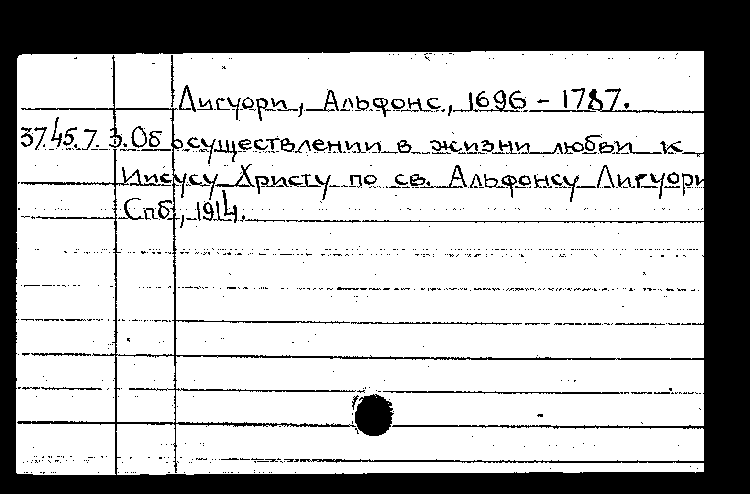 Лигуори, Альфонс, 1696 - 1787.
37.45.7.3. Об осуществлении в жизни любви к
Иисусу Христу по св. Альфонсу Лигуори
Спб, 1914.